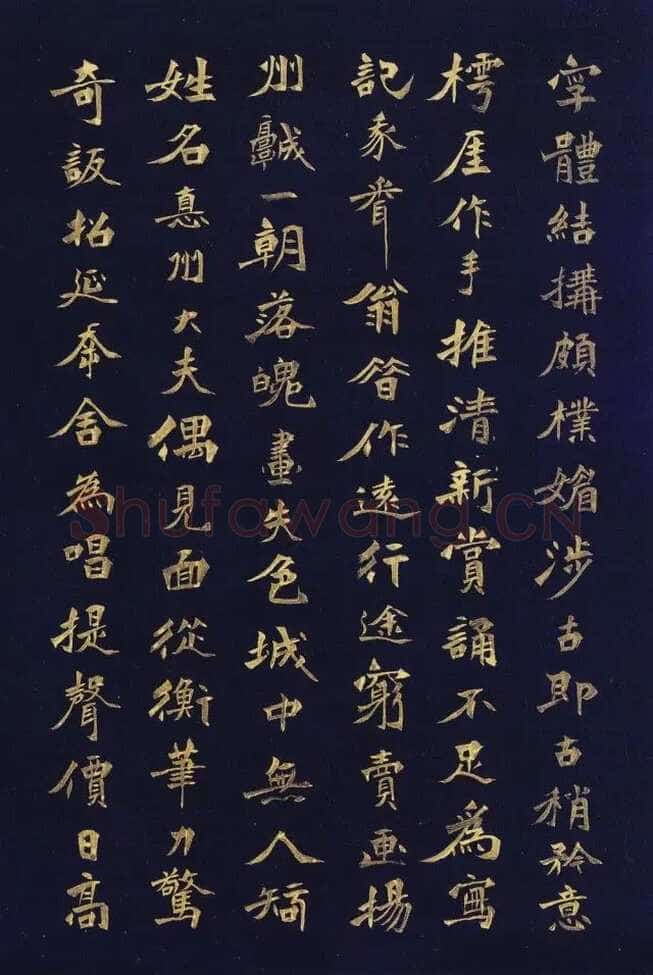 字體結搆頗樸媚涉古即古稍矜意
樗厓作手推清新賞誦不足爲寫
記翁作遠行途窮賣画揚
州一朝落魄畫失色城中無人
姓名惪州大夫偶見面從衡筆力驚
奇招延舍為唱提聲價日高
Shufawang.CN